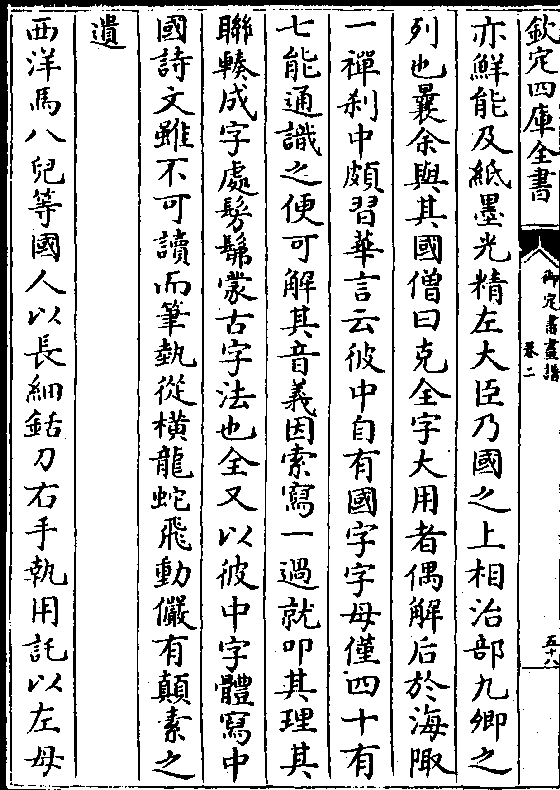 欽定四庫全書
御定書畫譜
卷二
五十八
亦鮮能及紙墨光精左大臣乃國之上相治部九卿之
列也曩余與其國僧曰克全字大用者偶解后於海陬
一禪刹中頗習華言云彼中自有國字字母僅四十有
七能通識之便可解其音義因索寫一過就叩其理其
聯輳成字處髣髴蒙古字法也全又以彼中字體寫中
國詩文雖不可讀而筆埶從橫龍蛇飛動儼有顛素之
遺
西洋馬八兒等國人以長細鈷刀右手執用託以左母